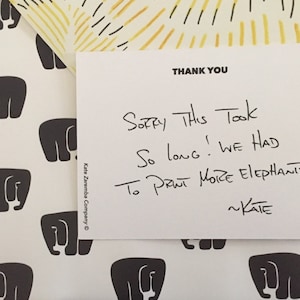 THANK YOU
SORRY THIS TOOK
SO LONG! WE HAD
TO PRINT MORE ELEPHANTS
~KATE
Kate Zaremba Company ©